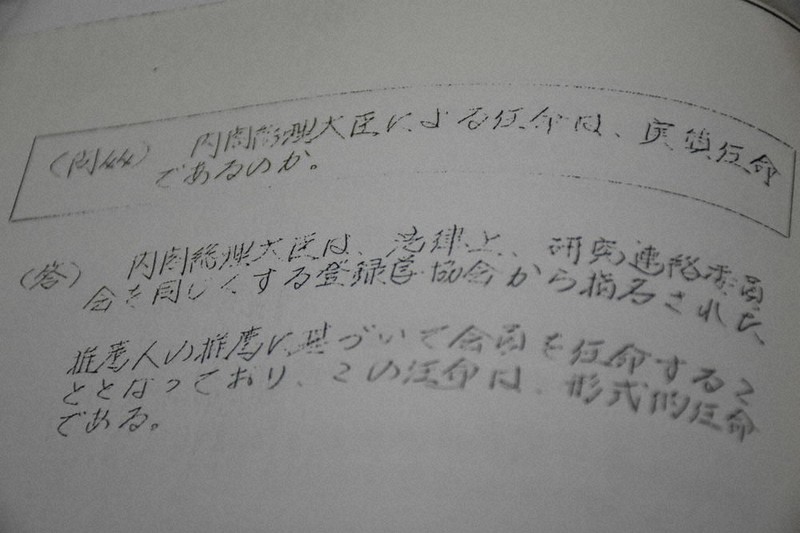 (問44) 内閣総理大臣による任命は、実質任命
であるのか。
(答) 内閣総理大臣は、法律上、研究連絡委員
会を同じくする登録学協会から指名された
推薦人の推薦に基づいて会員を任命するこ
ととなっており、この任命は、形式的任命
である。